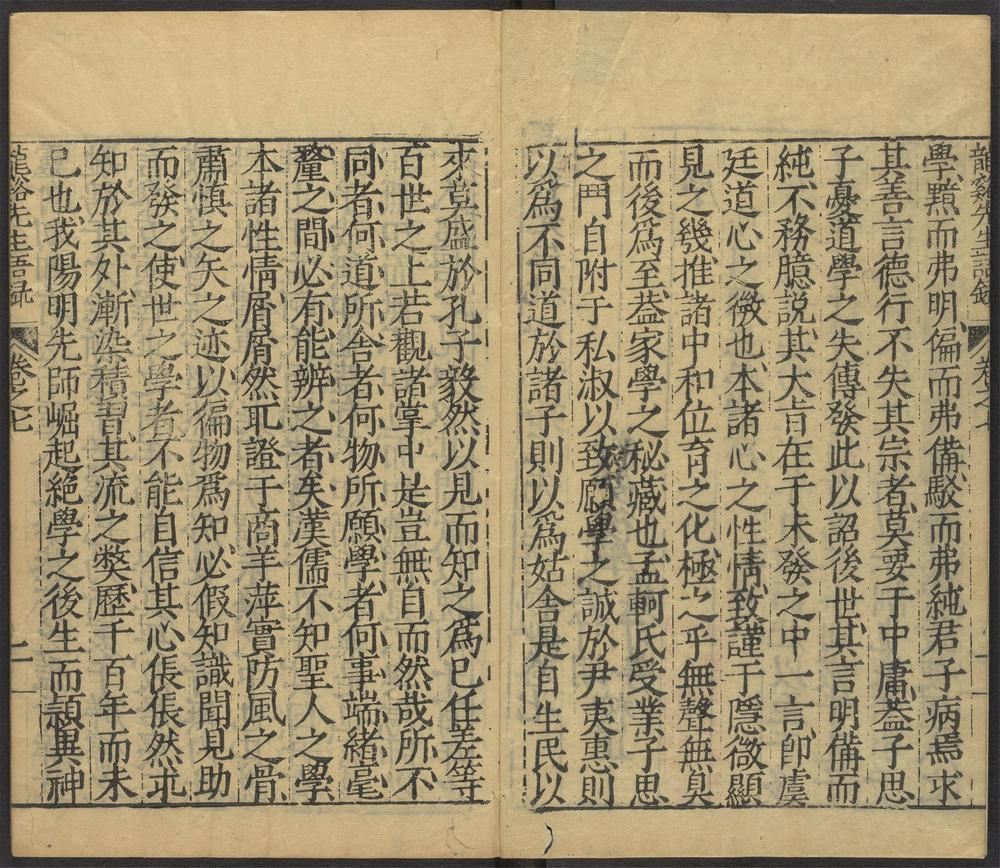 龍谿先生語錄 卷之七 二
學黯而弗明偏而弗備駁而弗純君子病焉求
其善言德行不失其宗者莫要于中庸葢子思
子憂道學之失傳發此以詔後世其言明備而
純不務臆説其大旨在于未發之中一言卽虞
廷道心之微也本諸心之性情致謹于隱微顯
見之幾推諸中和位育之化極之乎無聲無臭
而後爲至葢家學之秘藏也孟軻氏受業子思
之門自附于私淑以致願學之誠於尹夷惠則
以爲不同道於諸子則以爲姑舍是自生民以
來莫盛於孔子毅然以見而知之爲已任差等
百世之上若觀諸掌中是豈無自而然哉所不
同者何道所舍者何物所願學者何事端緒毫
釐之間必有能辨之者矣漢儒不知聖人之學
本諸性情屑屑然取證于商羊萍實防風之骨
肅慎之矢之迹以徧物爲知必假知識聞見助
而發之使世之學者不能自信其心倀倀然求
知於其外漸染積習其流之獘歷千百年而未
已也我陽明先師崛起絶學之後生而頴異神
龍谿先生語錄 卷之七 二